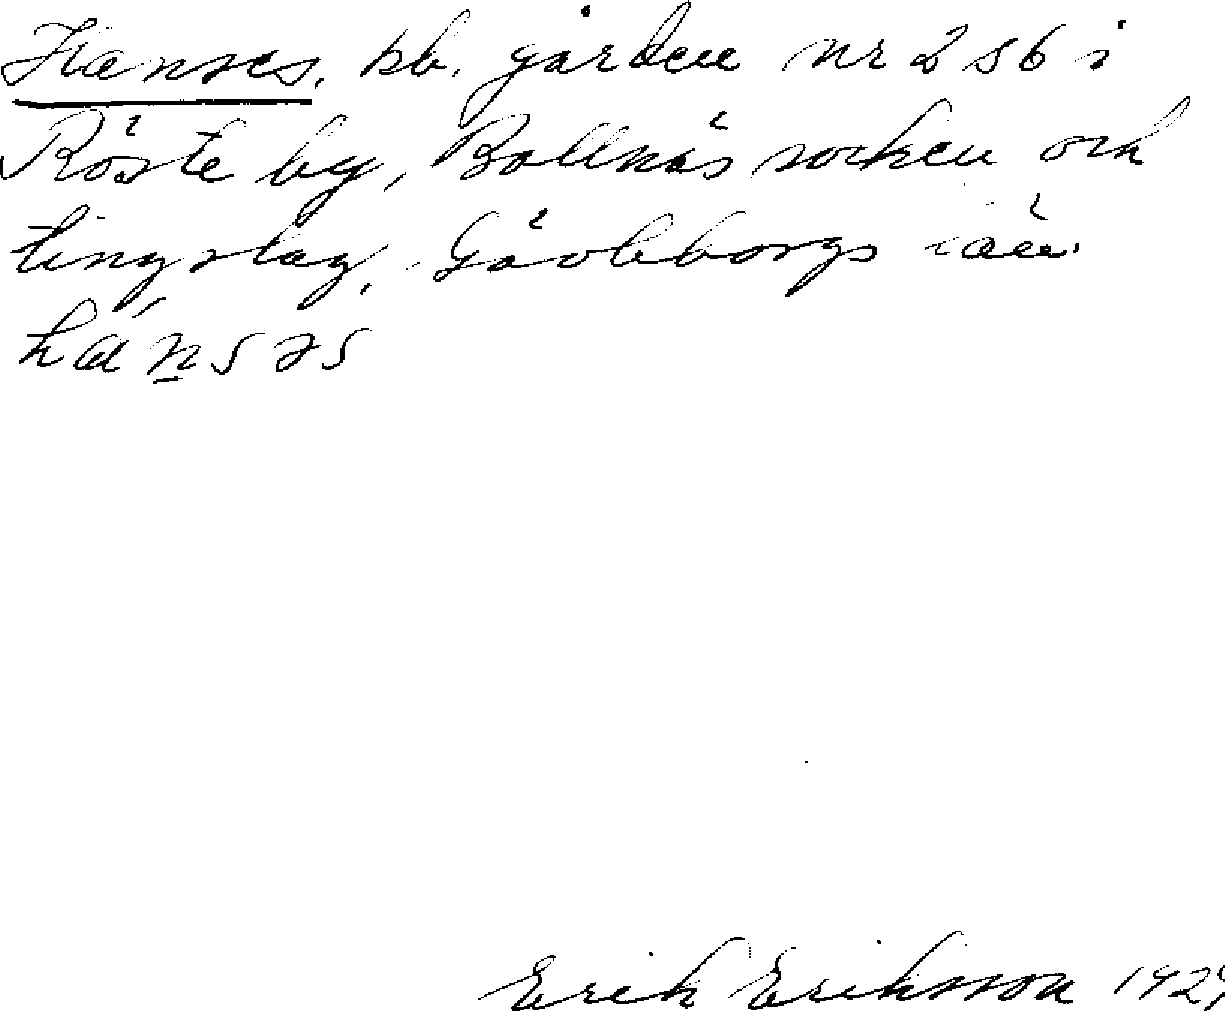 Hanses, bb. gården nr 2 S6 i
Röste by, Bollnäs socken och
tingslag, Gävleborgs län.
hánsəs
Erik Eriksson